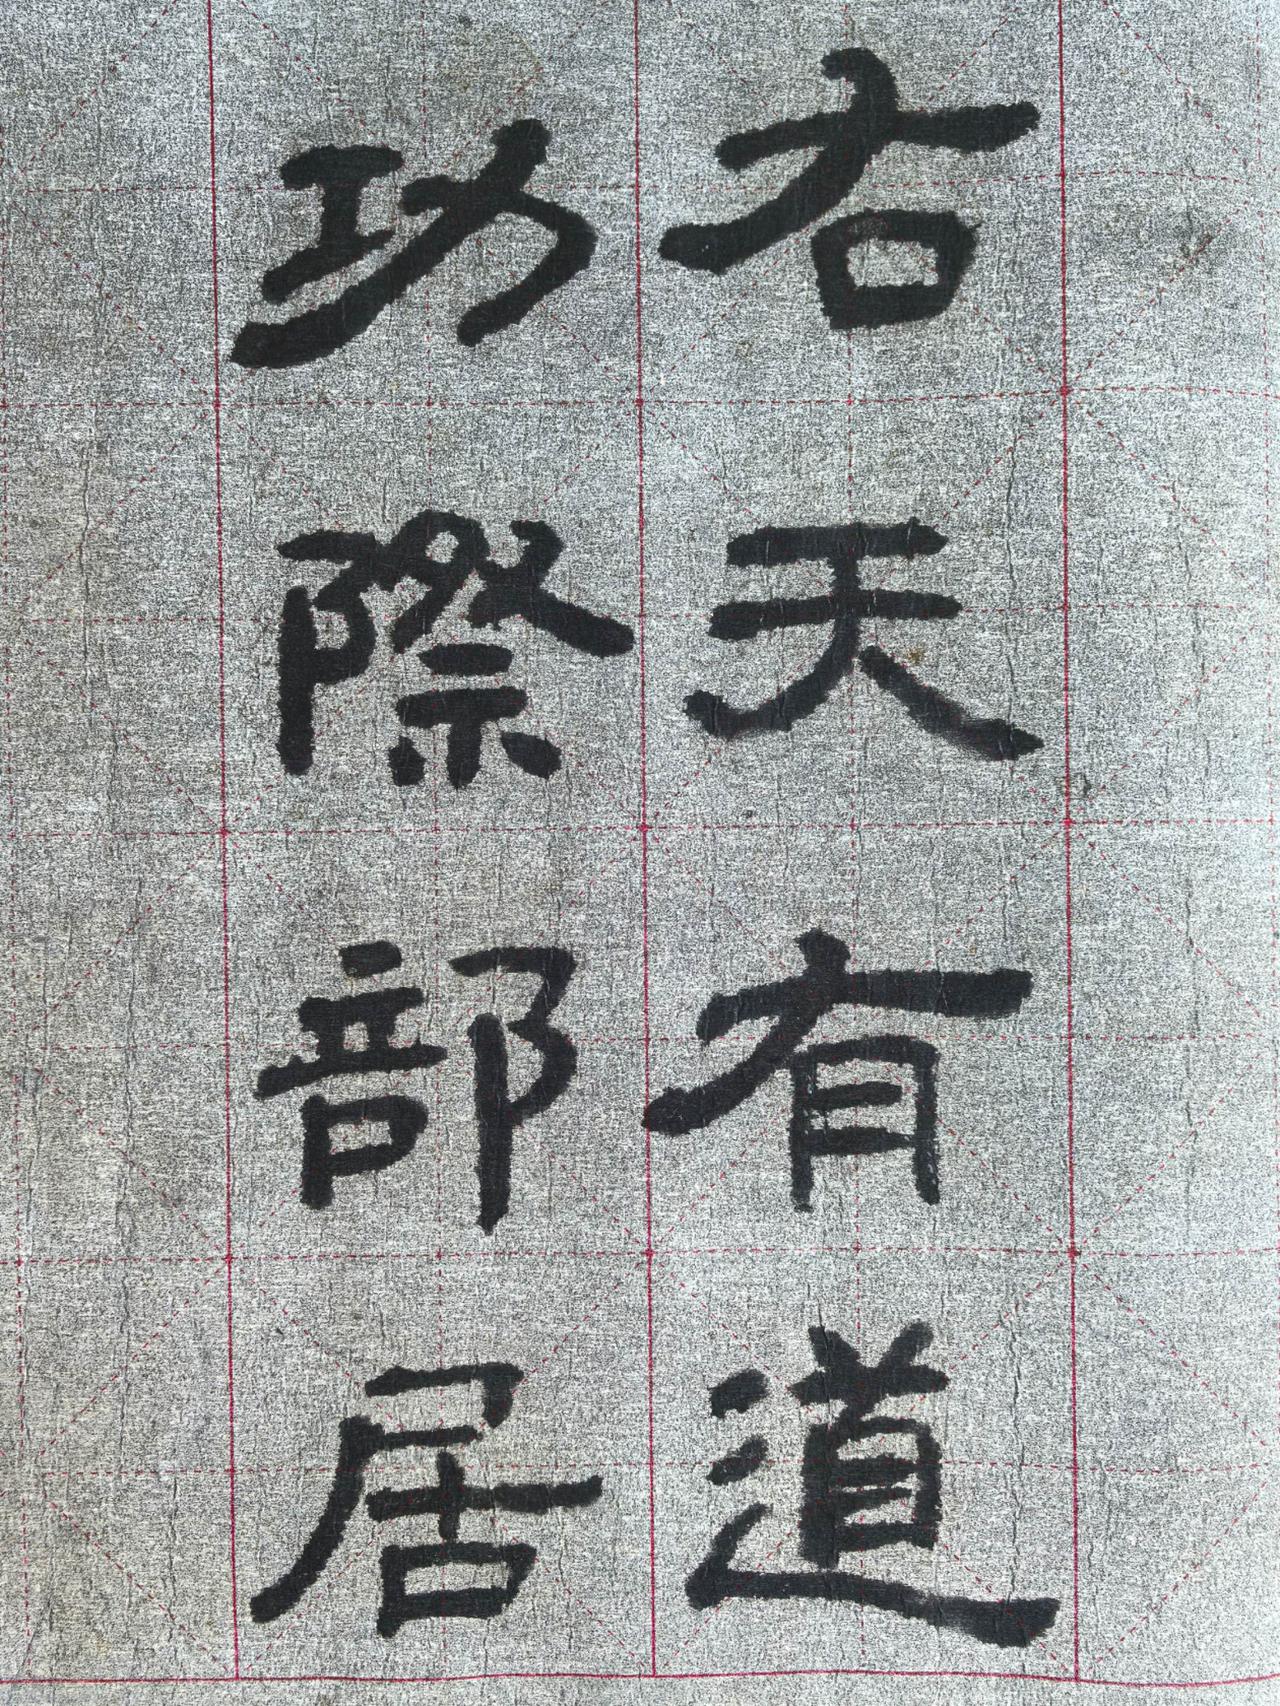 右天有道
功際部居